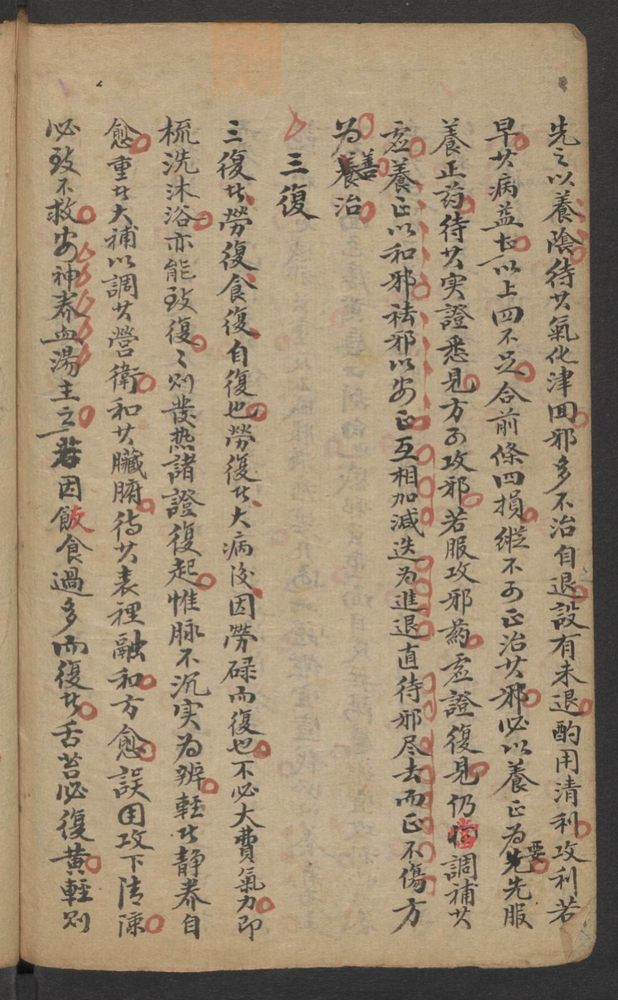 先之以養陰待其氣化津回邪多不治自退設有未退酌用清利攻利若
早其病益甚以上四不足合前條四損縱不可正治其邪必以養正為要先先服
養正药待其实證悉見方可攻邪若服攻邪药虛證復見仍當調補其
虛養正以和邪祛邪以安正互相加減迭为進退直待邪尽去而正不傷方
为善治
三復
三復者勞復食復自復也勞復者大病後因勞碌而復也不必大費氣力即
梳洗沐浴亦能致復〻则發热諸證復起惟脉不沉实为辨輕者靜养自
愈重者大補以調其營衛和其臟腑待其表裡融和方愈誤用攻下清凉
必致不救安神养血湯主之若因飯食過多而復者舌苔必復黄輕则